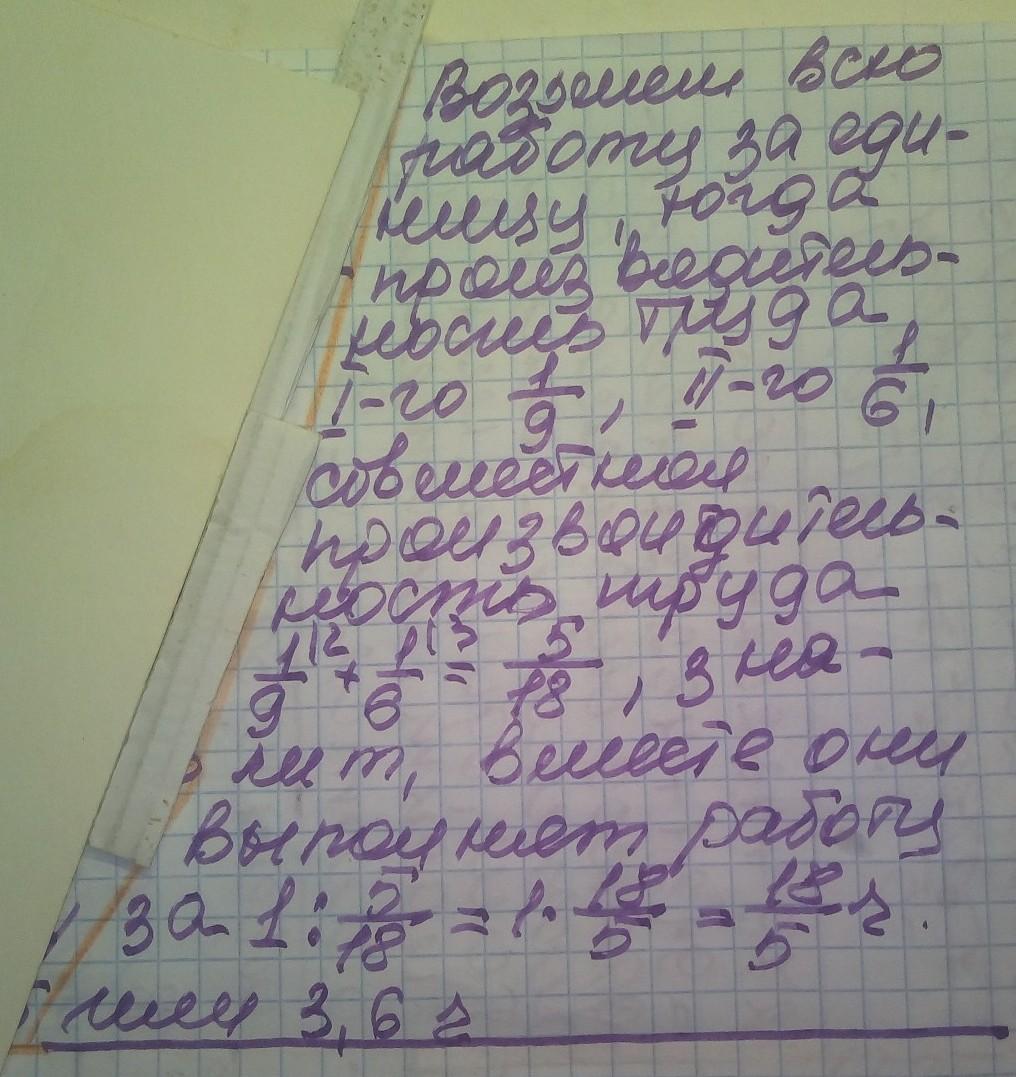 Возьмем всю
работу за еди-
ницу, тогда
производитель-
ность труда
I-го 1/9, II-го 1/6,
совместная
производитель-
ность труда
1/9(2 + 1/6(3 = 5/18, зна-
чит, вместе они
выполнят работу
за 1 : 5/18 = 1 · 18/5 = 18/5 ч.
или 3,6 ч